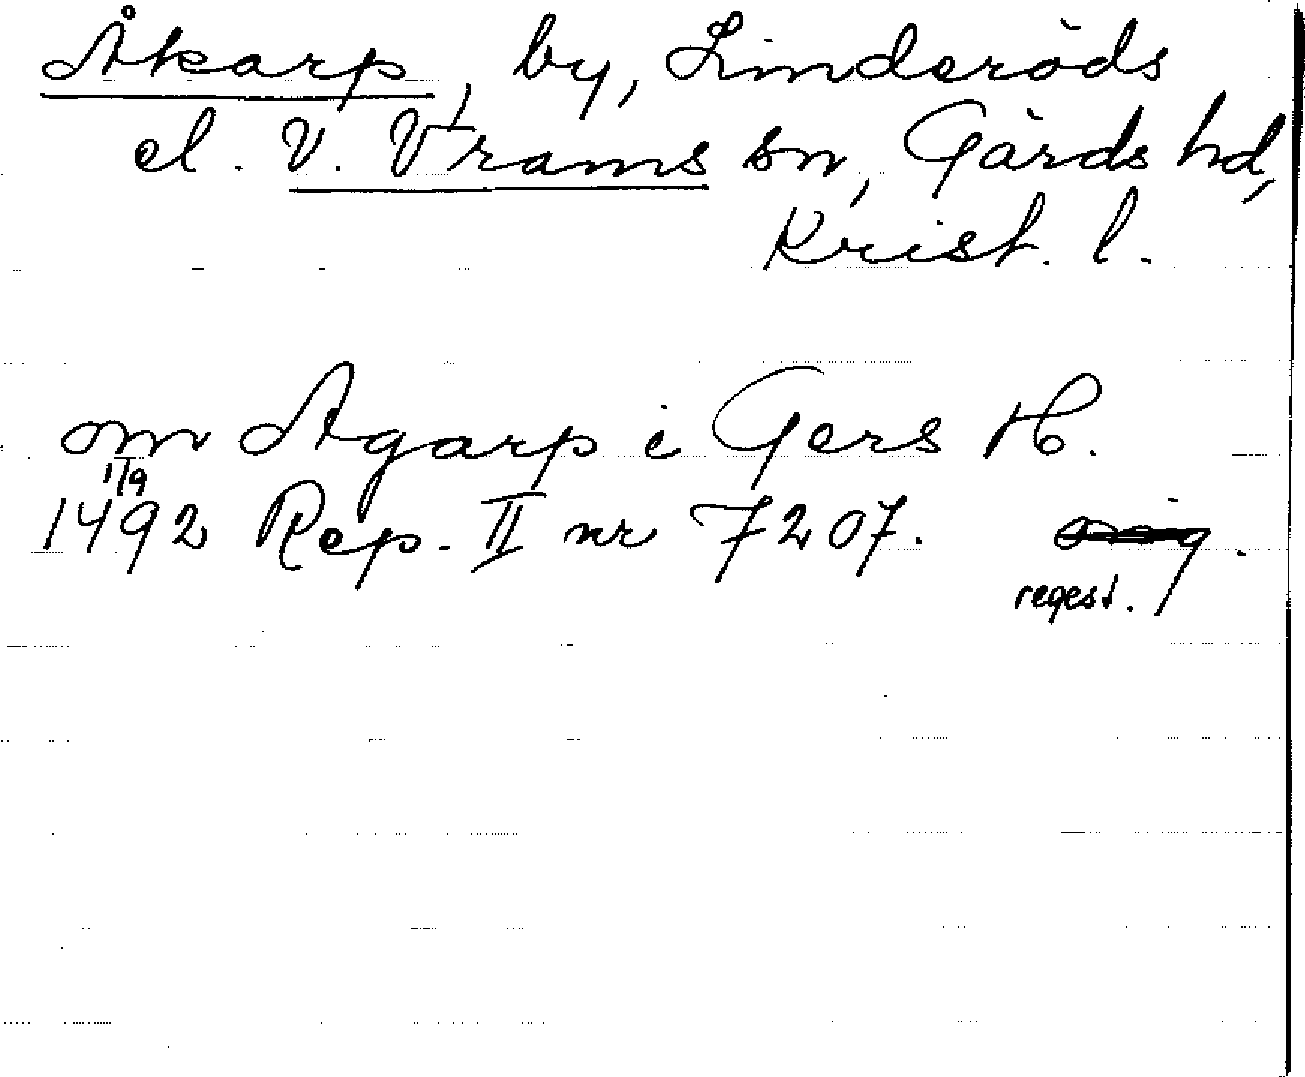 Åkarp, by, Linderöds
el. V. Vrams sn, Gärds hd,
Krist. l.
om Agarp i Gers H.
1/9
1492 Rep. II nr 7207.
regest.